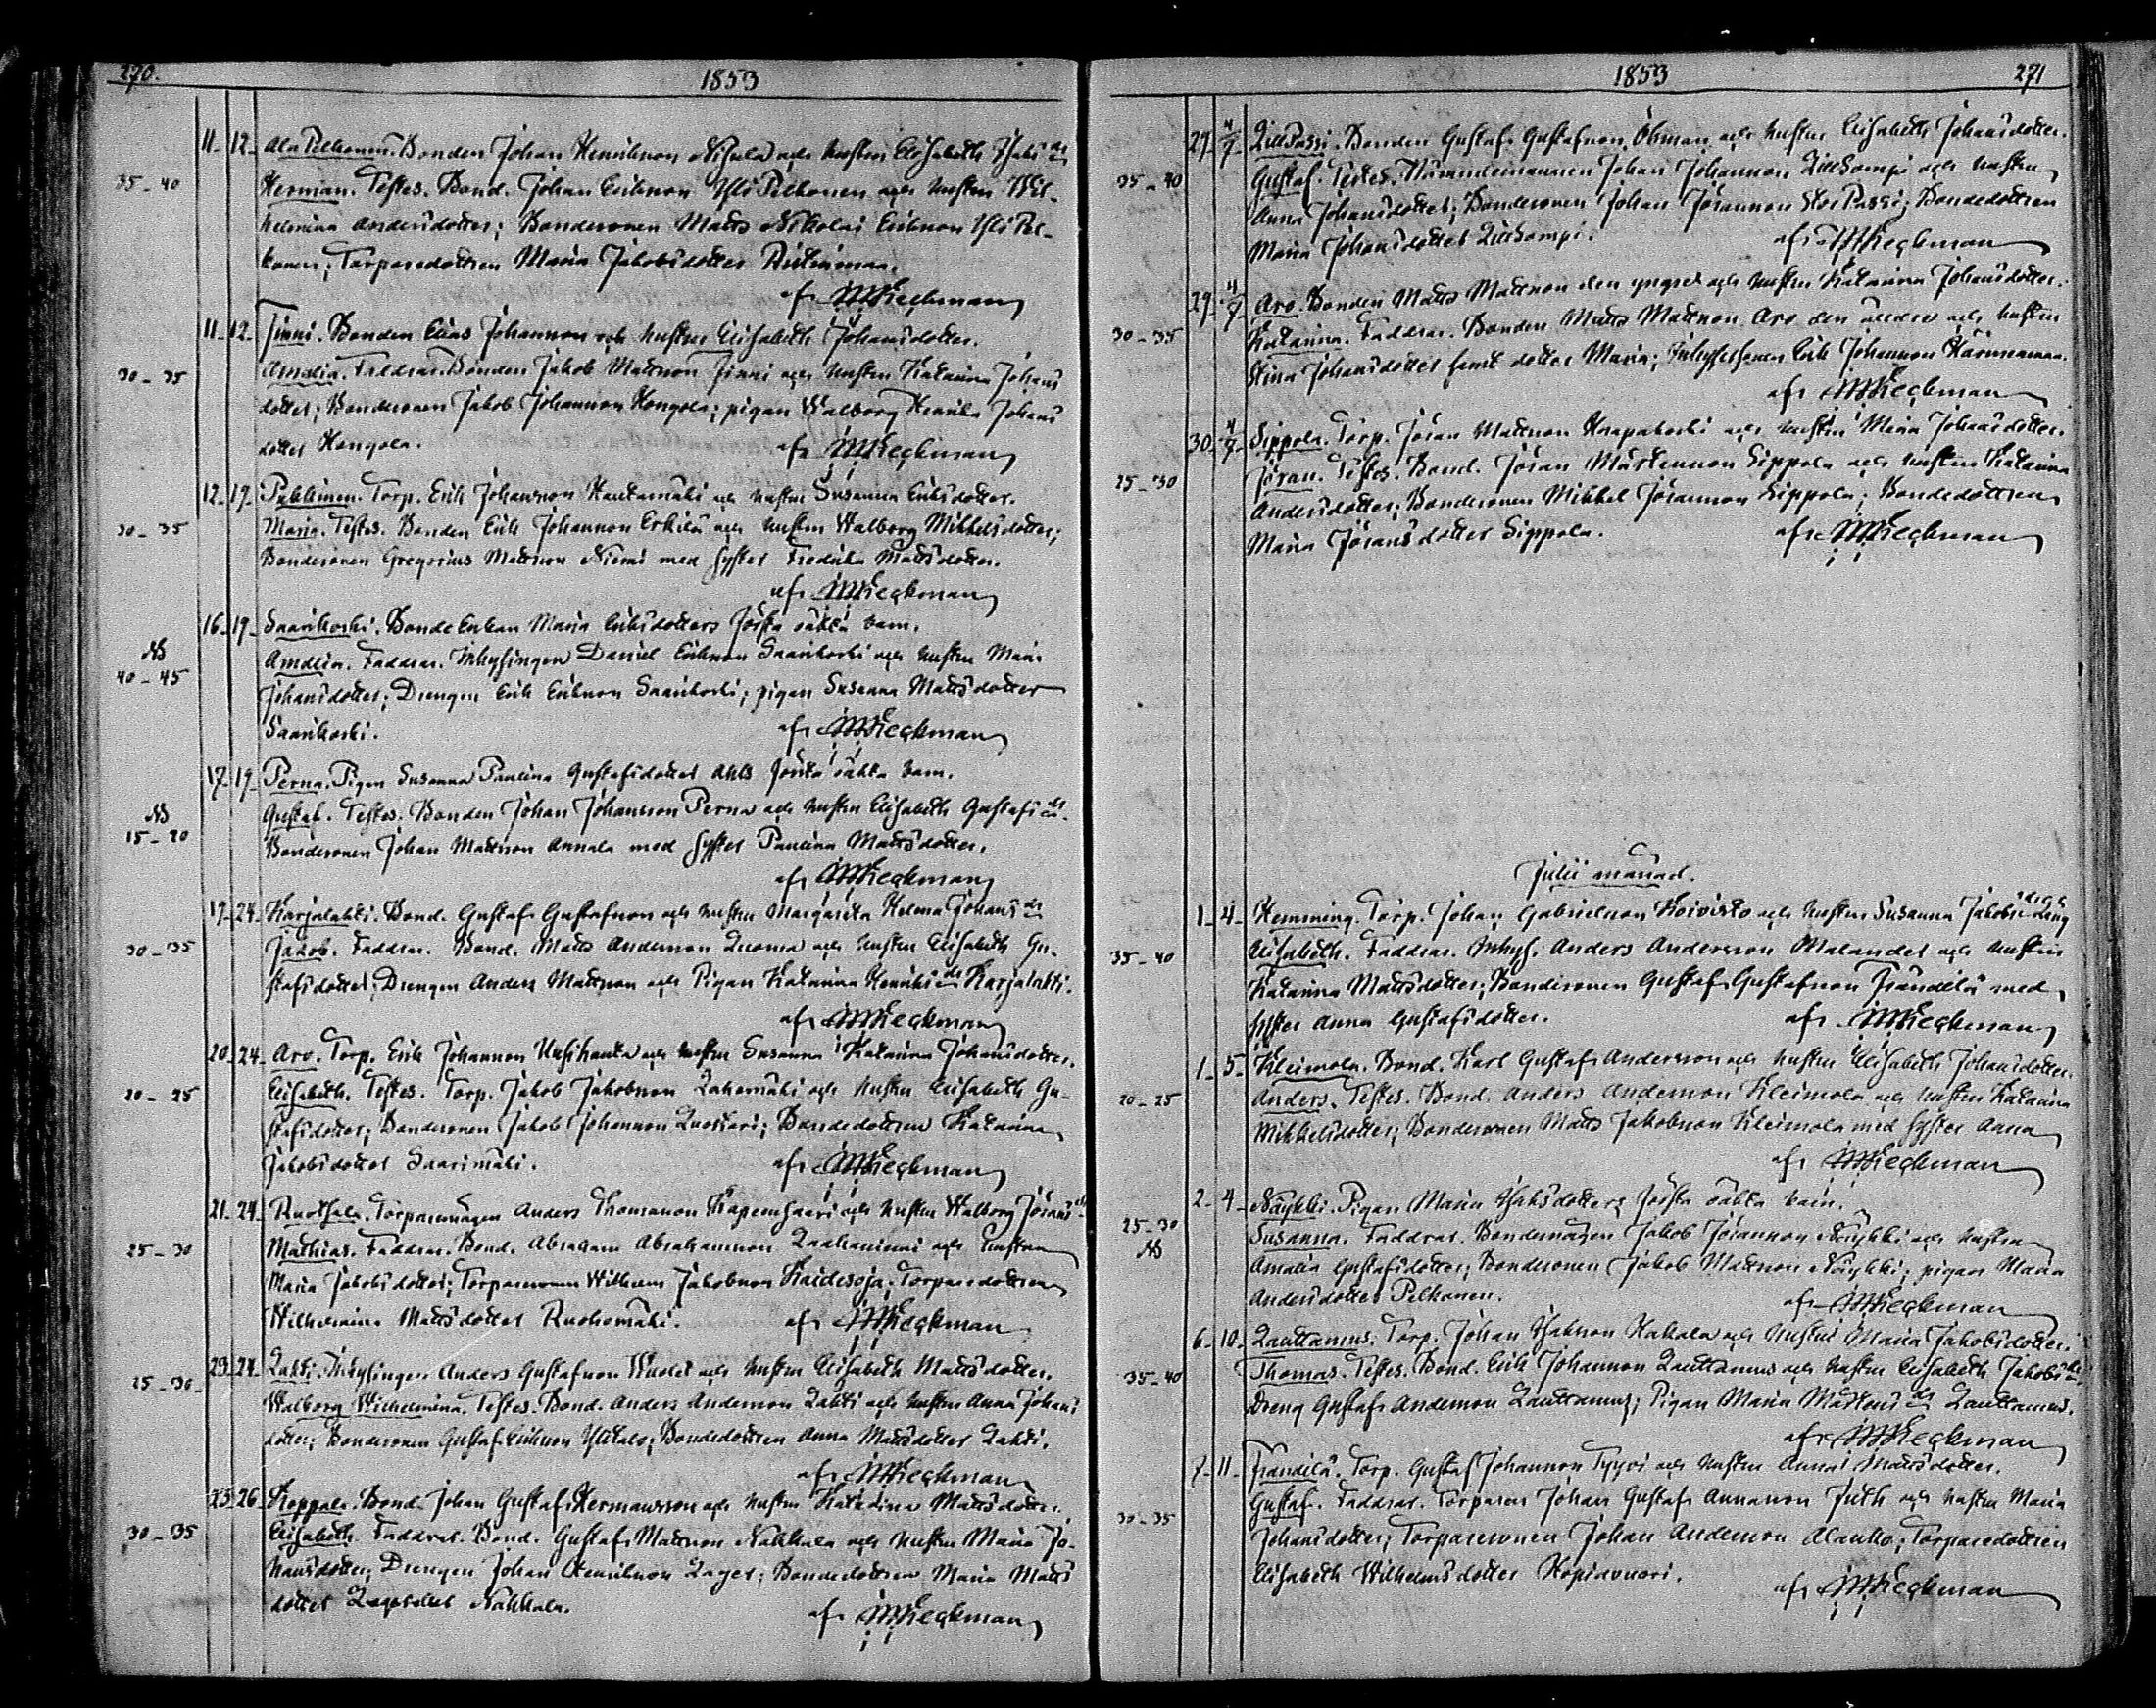 270.
1853
11. 12. Ala Pelkonen. Bonden Johan Henriksson Nisula och hustru Elisabeth Isaks dr
35-40 Herman. Testes. Bond. Johan Eriksson Yli Pelkonen och hustru Wil-
helmina Andersdotter; Bondesonen Matts Nikolai Eriksson Yli Pel-
konen; Torparedottren Maria Jakobsdotter
af
11. 12. Finni. Bonden Elias Johansson och hustru Elisabeth Johansdotter.
30-35 Amalia. Faddrar. Bonden Jakob Mattsson Finni och hustru Katarina Johans
dotter; Bondesonen Jakob Johansson Kongola; pigan Walborg Henrika Johans
dotter Kongola. af
12. 19. Pahkinen. Torp. Erik Johansson Hautamäki och hustru Susanna Eriksdotter.
30-35 Maria. Testes. Bonden Erik Johansson Erkilä och hustru Walborg Mikkelsdotter;
Bondesonen Gregorius Mattsson Niemi med syster Fredrika Mattsdotter.
af
16. 19. Saarikoski. Bonde Enkan Maria Eriksdotters första oäkta barn.
40-45 Amalia. Faddrar. Inhysingen Daniel Eriksson Saarikoski och hustru Maria
Johansdotter; Drengen Erik Eriksson Saarikoski; pigan Susanna Mattsdotter
Saarikoski. af
17. 19. Perna. Pigan Susanna Paulina Gustafsdotter Ahls första oäkta barn.
15-20 Gustaf. Testes. Bonden Johan Johansson Perna och hustru Elisabeth Gustafs dr
Bondesonen Johan Mattsson Annala med syster Paulina Mattsdotter.
af
19. 24. Karjalahti. Bond. Gustaf Gustafsson och hustru Margareta Helena Johans dr
30-35 Jakob. Faddrar. Bond. Matts Andersson Luoma och hustru Elisabeth Gu-
stafsdotter; Drengen Anders Mattsson och Pigan Katarina Henriks dr Karjalahti.
af
20. 24. Aro. Torp. Erik Johansson Uusihauta och hustru Susanna Katarina Johansdotter.
20-25 Elisabeth. Testes. Torp. Jakob Jakobsson och hustru Elisabeth Gu-
stafsdotter; Bondesonen Jakob Johansson; Bondedottren Katarina
Jakobsdotter Saarimäki. af
21. 24. Ruokala. Torparemågen Anders Thomasson och hustru Walborg Jörans dr
25-30 Mathias. Faddrar. Bond. Abraham Abrahamsson Laahaniemi och hustru
Maria Jakobsdotter; Torparesonen Wilhelm Jakobsson Kaidesoja; Torparedottren
Wilhelmina Mattsdotter Ruohomäki. af
23. 24. Lahti. Inhysingen Anders Gustafsson och hustru Elisabeth Mattsdotter.
25-30 Walborg Wilhelmina. Testes. Bond. Anders Andersson Lahti och hustru Anna Johans
dotter; Bondesonen Gustaf Eriksson Ylitalo; Bondedottren Anna Mattsdotter Lahti.
af
23. 26. Koppala. Bond. Johan Gustaf Hermansson och hustru Katarina Mattsdotter.
30-35 Elisabeth. Faddrar. Bond. Gustaf Mattsson Nahkala och hustru Maria Jo-
hansdotter; Drengen Johan Henriksson Lager; Bondedottren Maria Matts
dotter Nahkala. af
1853
271
29. 4/7 Lill Passi. Bonden Gustaf Gustafsson Öhman och hustru Elisabeth Johansdotter.
35-40 Gustaf. Testes. Nämndemannen Johan Johansson Lillkampi och hustru
Anna Johansdotter; Bondesonen Johan Jöransson Stor Passi; Bondedottren
Maria Johansdotter Lillkampi. af
29. 4/7 Aro. Bonden Matts Mattsson den yngre och hustru Katarina Johansdotter.
30-35 Katarina. Faddrar. Bonden Matts Mattsson Aro den äldre och hustru
Stina Johansdotter samt dotter Maria; Erik Johansson
af
30. 4/7 Sippola. Torp. Jöran Mattsson Haapakoski och hustru Maria Johansdotter.
25-30 Jöran. Testes. Bond. Jöran Mårtensson Sippola och hustru Katarina
Andersdotter; Bondesonen Mikkel Jöransson Sippola; Bondedottren
Maria Jöransdotter Sippola. af
Julii månad.
1. 4. Hemming. Torp. Johan Gabrielsson Koivisto och hustru Susanna Jakobs dr
35-40 Elisabeth. Faddrar. Inhys. Anders Andersson Malander och hustru
Katarina Mattsdotter; Bondesonen Gustaf Gustafsson Frändilä med
syster Anna Gustafsdotter. af
1. 5. Kleimola. Bond. Karl Gustaf Andersson och hustru Elisabeth Johansdotter.
20-25 Anders. Testes. Bond. Anders Andersson Kleimola och hustru Katarina
Mikkelsdotter; Bondesonen Matts Jakobsson Kleimola med syster Anna
af
2. 4. Näykki. Pigan Maria Isaksdotters första oäkta barn.
25-30 Susanna. Faddrar. Bondemågen Jakob Jöransson Näykki och hustru
Amalia Gustafsdotter; Bondesonen Jakob Mattsson Näykki; pigan Maria
Andersdotter Pelkonen. af
6. 10. Lauttamus. Torp. Johan Isaksson Hakala och hustru Maria Jakobsdotter.
35-40 Thomas. Testes. Bond. Erik Johansson Lauttamus och hustru Elisabeth Jakobs dr
Dreng Gustaf Andersson Lauttamus; Pigan Maria Mårtens dr Lauttamus.
af
7. 11. Frändilä. Torp. Gustaf Johansson Tyyri och hustru Anna Mattsdotter.
30-35 Gustaf. Faddrar. Torparen Johan Gustaf Annanson Juth och hustru Maria
Johansdotter; Torparesonen Johan Andersson Alanko; Torparedottren
Elisabeth Wilhelmsdotter Kopiavuori. af